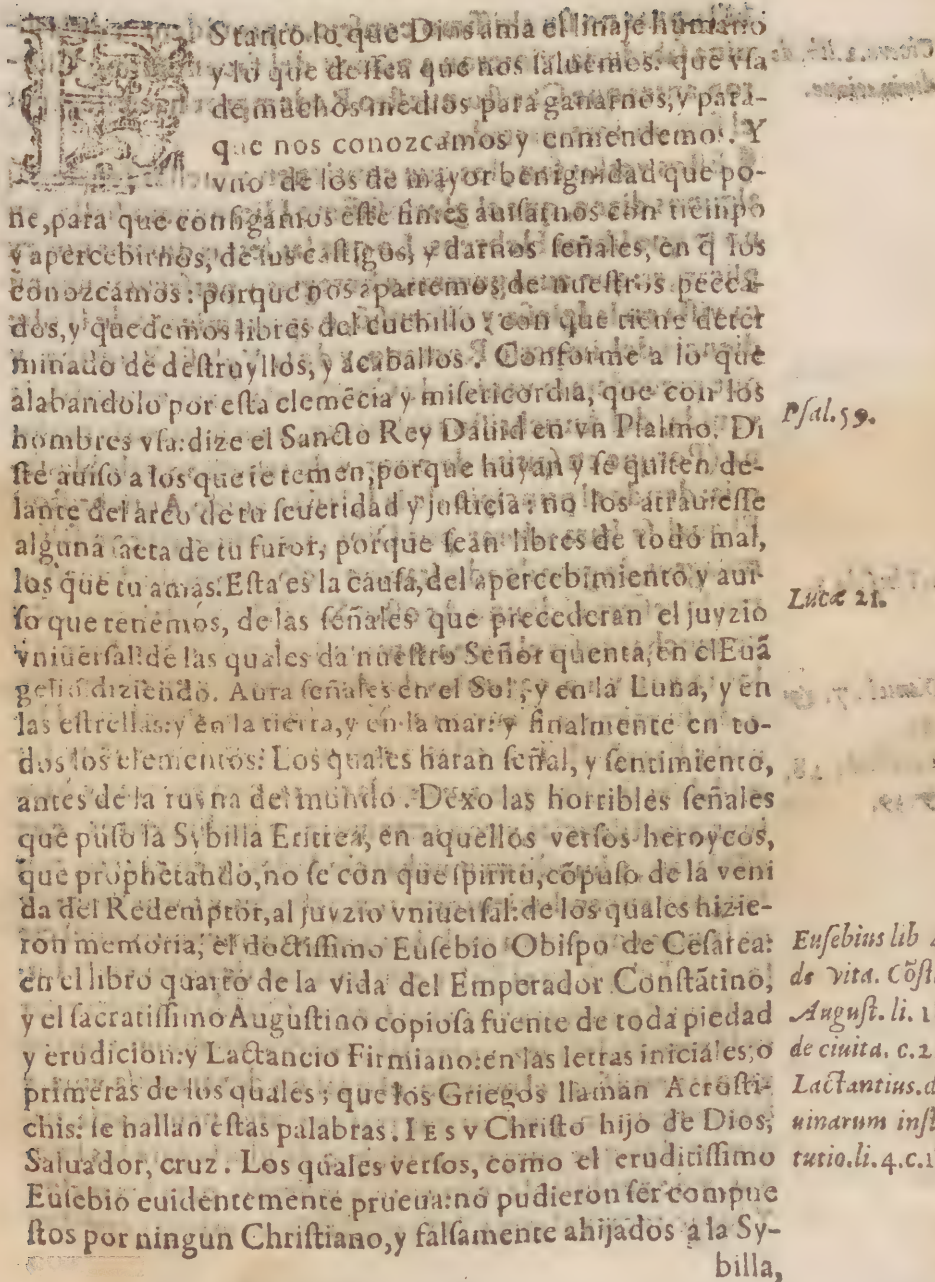 ES tanto lo que Dios ama el linaje humano
y lo que dessea que nos saluemos: que vsa
de muchos medios para ganarnos, y para-
que nos conozcamos y enmendemos. Y
vno de los de mayor benignidad que po-
ne, para que consigamos este fin: es auisarnos con tiempo
y apercebirnos, de sus castigos, y darnos señales, en q̃ los
conozcamos: porque nos apartemos de nuestros pecca-
dos, y quedemos libres del cuchillo, con que tiene deter
minado de destruyllos, y acaballos. Conforme a lo que
alabandolo por esta clemẽcia y misericordia, que con los
hombres vsa: dize el Sancto Rey Dauid en vn Psalmo. Di
ste auiso a los que te temen, porque huyan y se quiten de-
lante del arco de tu seueridad y justicia: no los atrauiesse
alguna saeta de tu furor, porque sean libres de todo mal,
los que tu amas. Esta es la causa, del apercebimiento y aui-
so que tenemos, de las señales que precederan el juyzio
vniuersal: de las quales da nuestro Señor quenta, en el Euã
gelio diziendo. Aura señales en el Sol, y en la Luna, y en
las estrellas: y en la tierra, y en la mar: y finalmente en to-
dos los elementos: Los quales haran señal, y sentimiento,
antes de la ruyna del mundo. Dexo las horribles señales
que puso la Sybilla Eritrea, en aquellos versos heroycos,
que prophetando, no se con que spiritu, cõpuso de la veni
da del Redemptor, al juyzio vniuersal: de los quales hizie-
ron memoria, el doctissimo Eusebio Obispo de Cesarea:
en el libro quarto de la vida del Emperador Constãtino,
y el sacratissimo Augustino copiosa fuente de toda piedad
y erudicion: y Lactancio Firmiano: en las letras iniciales, o
primeras de los quales, que los Griegos llaman Acrosti-
chis: se hallan estas palabras. IESV Christo hijo de Dios,
Saluador, cruz. Los quales versos, como el eruditissimo
Eusebio euidentemente prueua: no pudieron ser compue
stos por ningun Christiano, y falsamente ahijados a la Sy-
billa,
Psal. 59.
Lucæ 21.
Eusebius lib
de vita. Cõst
August. li. 1
de ciuita. c. 2
Lactantius. d
uinarum inst
tutio. li. 4. c. 1